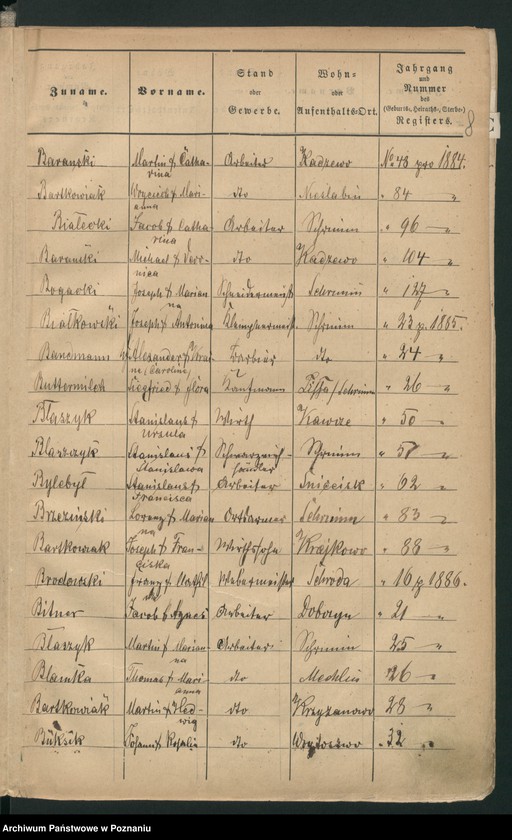 Zuname. Vorname. Stand oder Gewerbe. Wohn- oder Aufenthalts-Ort. Jahrgang und Nummer des (Geburts-, Heiraths-, Sterbe-) Registers.
8
Baranski Martin & Catharina Arbeiter Kadzewo No 43 pro 1884.
Bartkowiak Wojciech & Marianna dto 84 "
Białecki Jacob & Catharina Arbeiter Schrimm " 96 "
Baranski Michael & Veronica dto Kadzewo " 104 "
Bogacki Joseph & Marianna Schneidermeist Schrimm " 127 "
Białkowski Joseph & Antonina Klempnermeist. Schrimm " 23 p. 1885.
Bandmann Alexander & (Caroline) Barbier dto " 24 "
Buttermilch Siegfried & Flora Kaufmann Lissa/Schrimm " 26 "
Błaszyk Stanislaus & Ursula Wirth " 50 "
Błaszczyk Stanislaus & Stanislawa händler Schrimm " 57 "
Bylebył Stanislaus & Francisca Arbeiter " 62 "
Brzezinski Lorenz & Marianna Ortsarmer Schrimm " 83 "
Bartkowiak Joseph & Franciska Wirthssohn Krajkowo " 88 "
Brodowski Franz & Weber­meister Schroda " 16 p 1886.
Bitner Jacob & Agnes Arbeiter " 21 "
Błaszyk Martin & Marianna Arbeiter Schrimm 25 "
Thomas & Marianna dto Mechlin 26 "
Bartkowiak Martin & Hedwig dto Krzyzanowo 28 "
Büksik Johann & Rosalie dto " 32 "
Archiwum Państwowe w Poznaniu